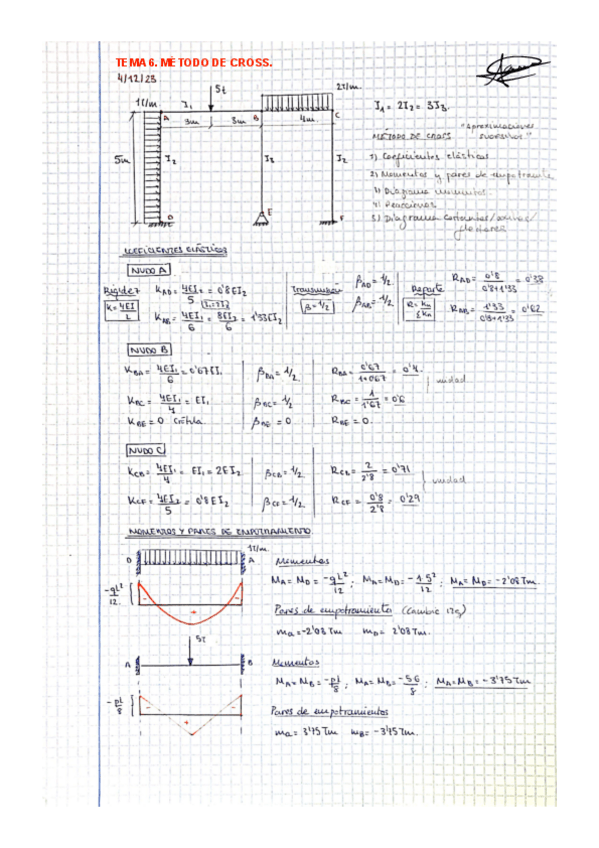 TEMA 6. MÉTODO DE CROSS.
4/12/23
5t
2T/m.
1T/m.
I₁
A
B
C
3m
3m
4m.
5m
I₂
I₂
I₂
D
E
F
I₁ = 2I₂ = 3I₃.
MÉTODO DE CROSS "Aproximaciones sucesivas"
1) Coeficientes elásticos
2) Momentos y pares de empotramiento
3) Diagrama momentos
4) Reacciones
5) Diagrama cortantes/axiles/flectores
COEFICIENTES ELÁSTICOS
NUDO A
Rigidez
K = 4EI/L
K_AD = 4EI₂/5 = 0'8EI₂
I₁ = 2I₂
K_AB = 4EI₁/6 = 8EI₂/6 = 1'33EI₂
Transmisión
β = 1/2
β_AD = 1/2
β_AB = 1/2
Reparto
R = Kn/ΣKn
R_AD = 0'8/0'8+1'33 = 0'38
R_AB = 1'33/0'8+1'33 = 0'62
NUDO B
K_BA = 4EI₁/6 = 0'67EI₁ β_BA = 1/2 R_BA = 0'67/1+0'67 = 0'4.
K_BC = 4EI₁/4 = EI₁ β_BC = 1/2 R_BC = 1/1'67 = 0'6
K_BE = 0 β_BE = 0 R_BE = 0.
unidad
NUDO C
K_CB = 4EI₁/4 = EI₁ = 2EI₂ β_CB = 1/2 R_CB = 2/2'8 = 0'71
K_CF = 4EI₂/5 = 0'8EI₂ β_CF = 1/2 R_CF = 0'8/2'8 = 0'29
unidad
MOMENTOS Y PARES DE EMPOTRAMIENTO
1T/m.
D
A
-qL²/12.
-
-
+
Momentos
M_A = M_D = -qL²/12 ; M_A = M_D = -1·5²/12 ; M_A = M_D = -2'08 Tm.
Pares de empotramiento (Cambia izq)
m_a = -2'08 Tm m_D = 2'08 Tm.
5t
A
B
-PL/8
-
-
+
Momentos
M_A = M_B = -PL/8 ; M_A = M_B = -5·6/8 ; M_A = M_B = -3'75 Tm
Pares de empotramientos
m_a = 3'75 Tm m_B = -3'75 Tm.